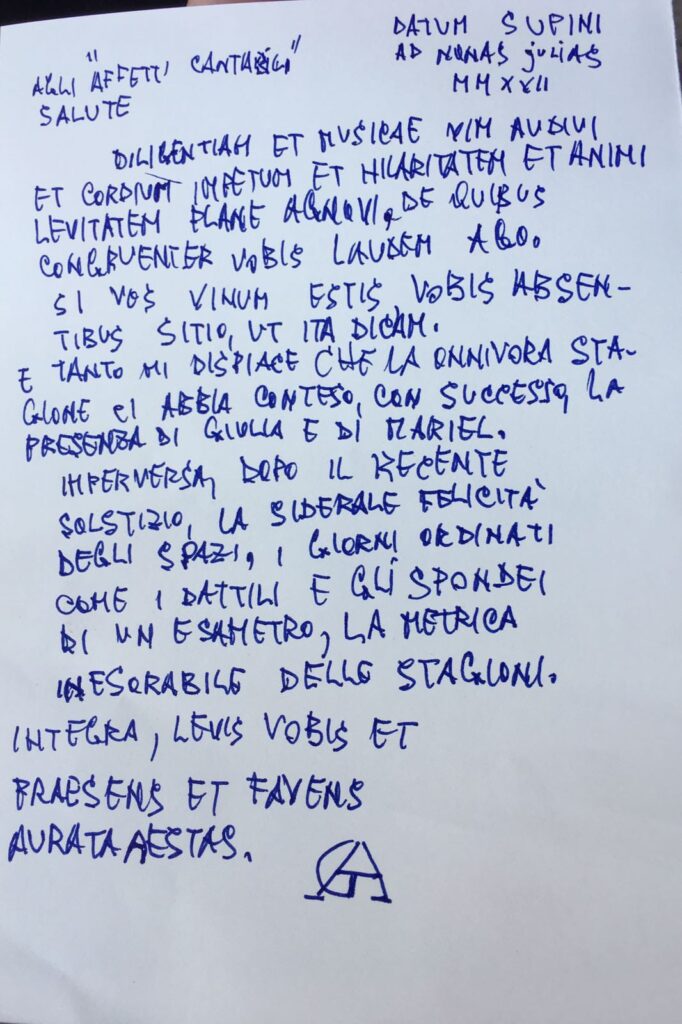 DATUM SUPINI
AD NONAS JULIAS
MMXXII
AGLI "AFFETTI CANTABILI"
SALUTE
DILIGENTIAM ET MUSICAE VIM AUDIVI
ET CORDIUM IMPETUM ET HILARITATEM ET ANIMI
LEVITATEM PLANE AGNOVI, DE QUIBUS
CONGRUENTER VOBIS LAUDEM AGO.
SI VOS VINUM ESTIS, VOBIS ABSEN-
TIBUS SITIO, UT ITA DICAM.
E TANTO MI DISPIACE CHE LA ONNIVORA STA-
GIONE CI ABBIA CONTESO, CON SUCCESSO, LA
PRESENZA DI GIULIA E DI MARIEL.
IMPERVERSA, DOPO IL RECENTE
SOLSTIZIO, LA SIDERALE FELICITÀ
DEGLI SPAZI, I GIORNI ORDINATI
COME I DATTILI E GLI SPONDEI
DI UN ESAMETRO, LA METRICA
INESORABILE DELLE STAGIONI.
INTEGRA, LEVIS VOBIS ET
PRAESENS ET FAVENS
AURATA AESTAS.